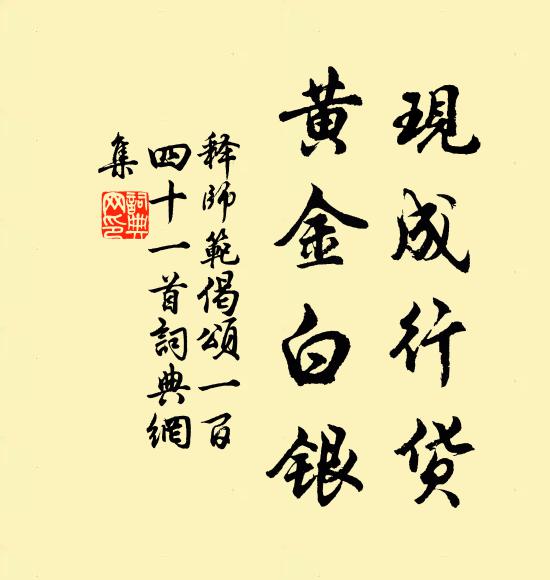 現成行货
黄金白銀
释師範偈頌一百
四十一首詞典網
集
詞典
网印